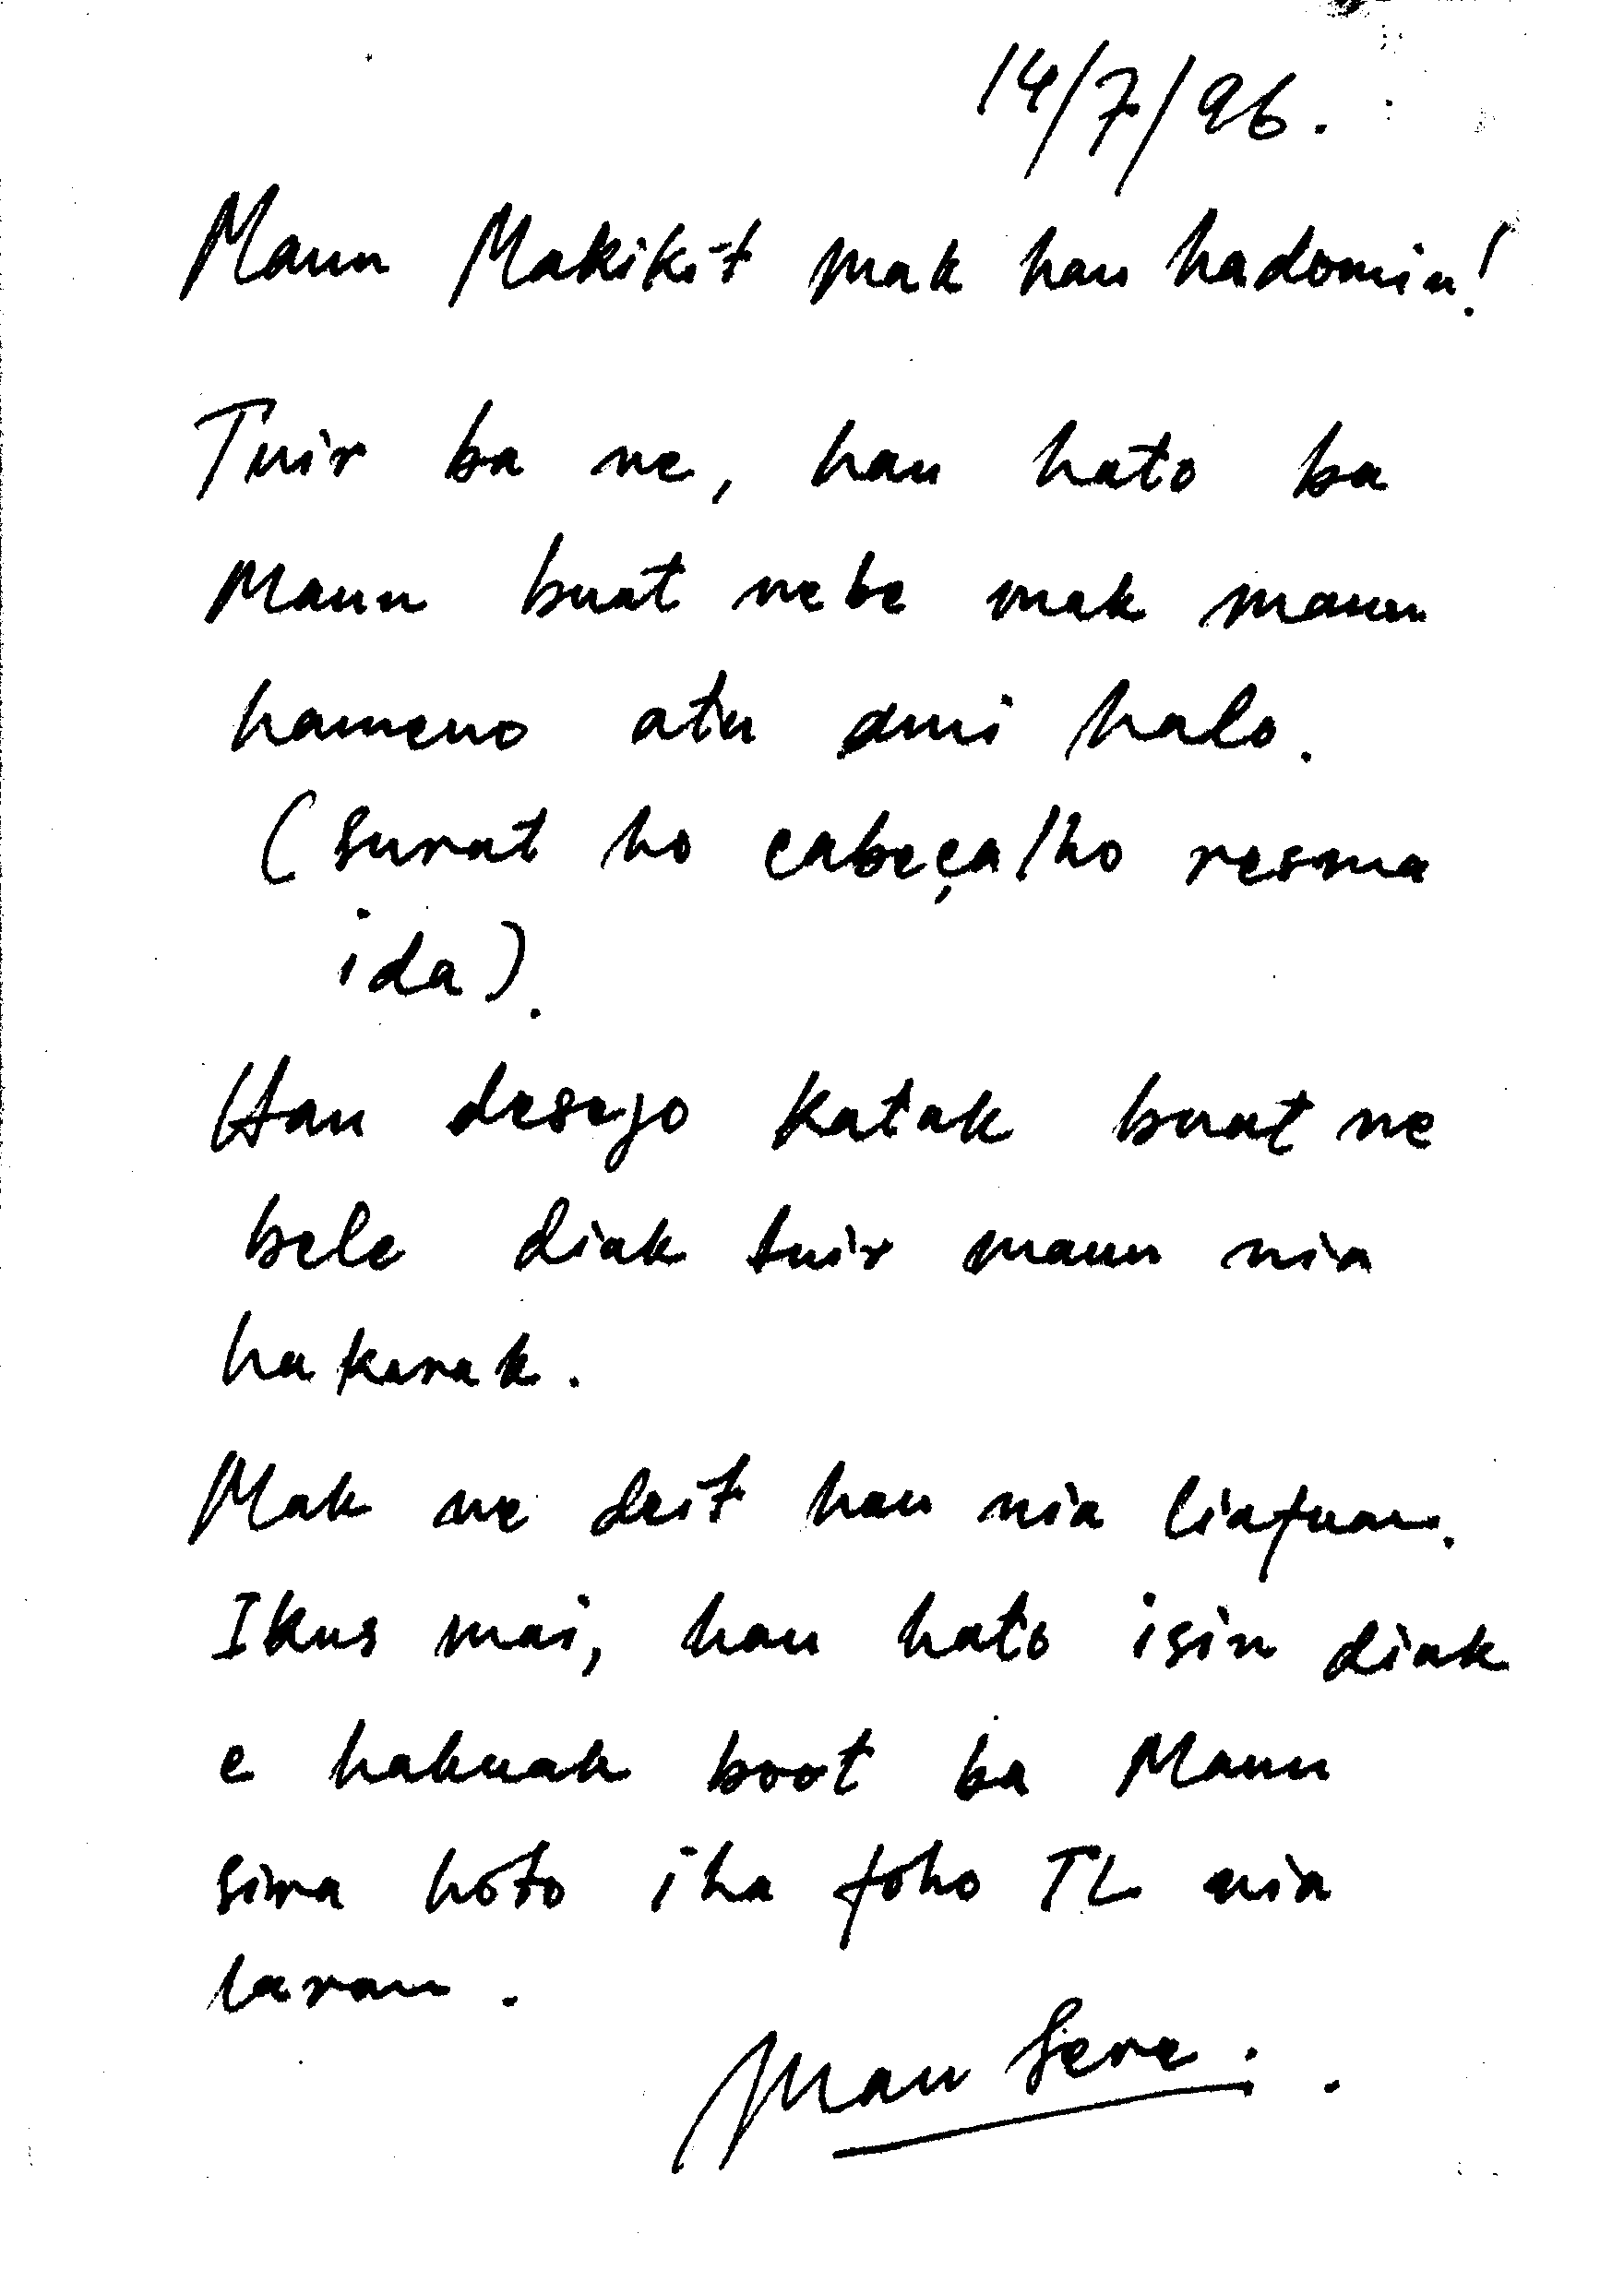 14/7/96.
Maun Makikit mak hau hadomin!
Tuir ba ne, hau hato ba
Maun buat nebe mak maun
hameno atu ami halo.
(surat ho cabeçalho resma
ida).
Hau desejo katak buat ne
bele diak tuir maun nia
hakarak.
Mak ne deit hau nia liafuan.
Ikus mai, hau hato isin diak
e hakuak boot ba Maun
sira hoto iha foho TL nia
laran.
Mau Sere.